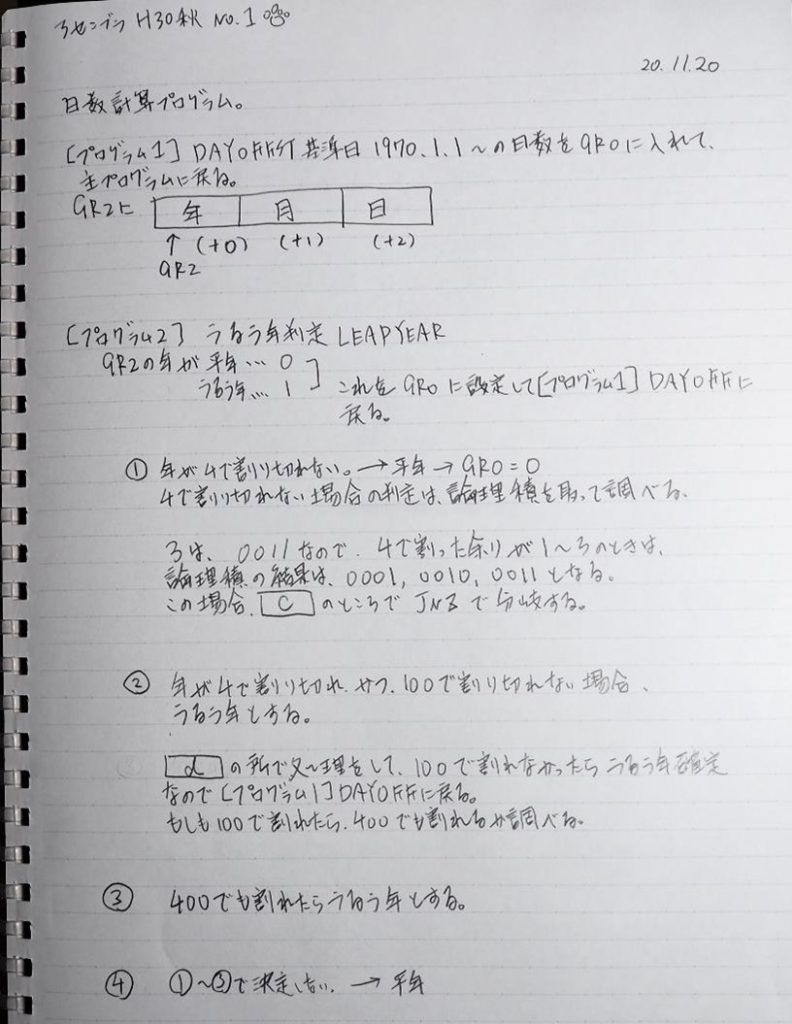 アセンブラ H30秋 No.1
20.11.20
日数計算プログラム。
[プログラム1] DAYOFF 基準日 1970.1.1~の日数をGR0に入れて、
主プログラムに戻る。
GR2に 年 月 日
↑ (+0) (+1) (+2)
GR2
[プログラム2] うるう年判定 LEAPYEAR
GR2の年が 平年… 0
うるう年… 1 これを GR0 に設定して[プログラム1] DAYOFFに
戻る。
① 年が4で割り切れない。→ 平年 → GR0 = 0
4で割り切れない場合の判定は、論理積を取って調べる。
3は、0011なので、4で割った余りが1~3のときは、
論理積の結果は、0001, 0010, 0011となる。
この場合、 C のところで JNZ で分岐する。
② 年が4で割り切れ、かつ、100で割り切れない場合、
うるう年とする。
d の所で処理をして、100で割れなかったらうるう年確定
なので[プログラム1]DAYOFFに戻る。
もしも100で割れたら、400でも割れるか調べる。
③ 400でも割れたらうるう年とする。
④ ①~③で決定しない。→ 平年